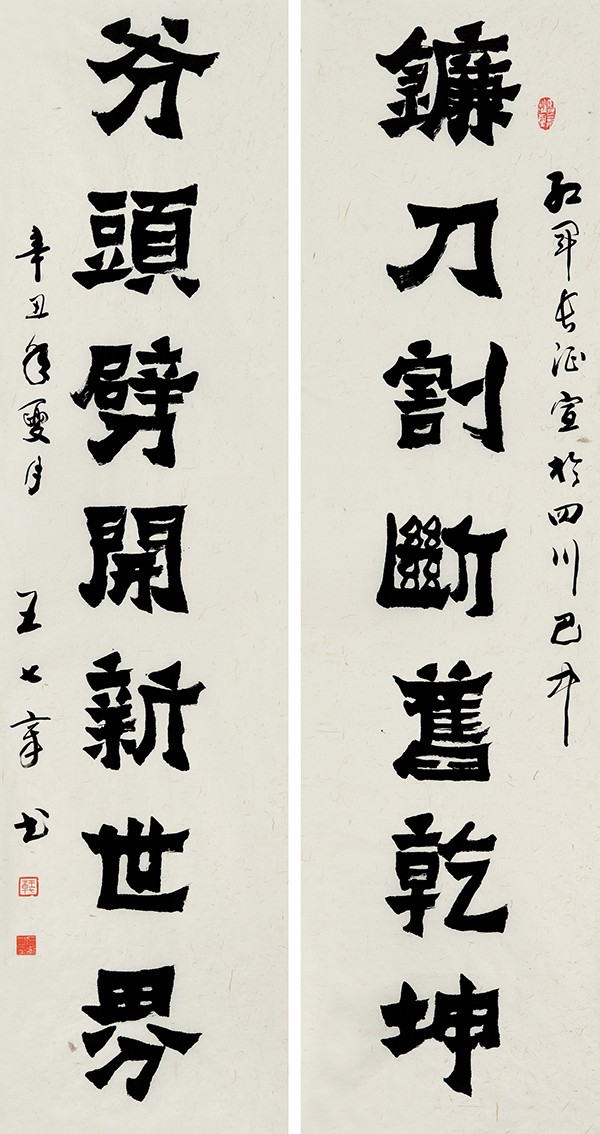 红军长征宣於四川巴中
鐮刀割斷舊乾坤
斧頭劈開新世界
辛丑年夏月 王七章书